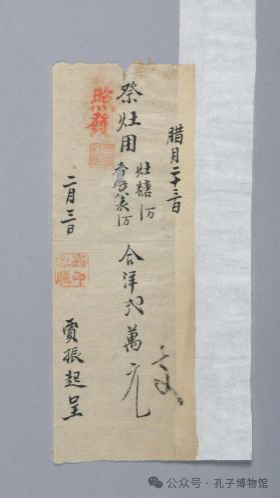 腊月二十三日
祭灶用
灶糖 万
香 表 万
合洋弍萬元
照發
二月三日
賈振起呈
公众号·孔子博物馆